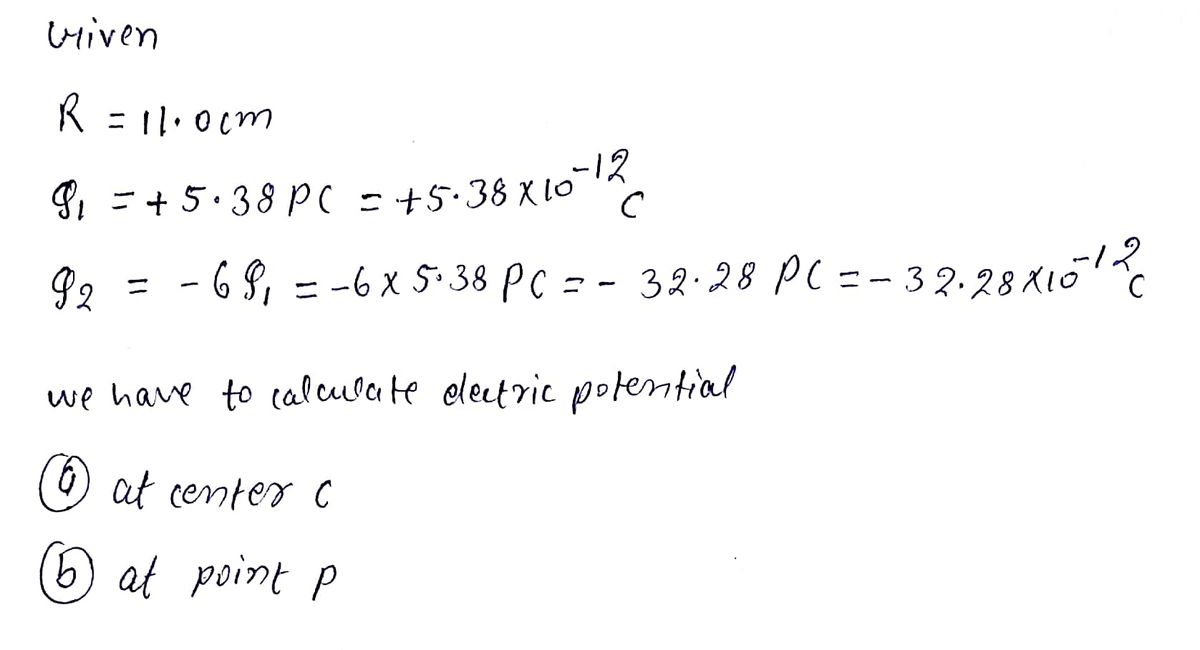 Given
R = 11.0cm
q₁ = +5.38 PC = +5.38 X 10⁻¹² C
q₂ = -6q₁ = -6 X 5.38 PC = - 32.28 PC = - 32.28 X10⁻¹² C
we have to calculate electric potential
ⓐ at center C
ⓑ at point P